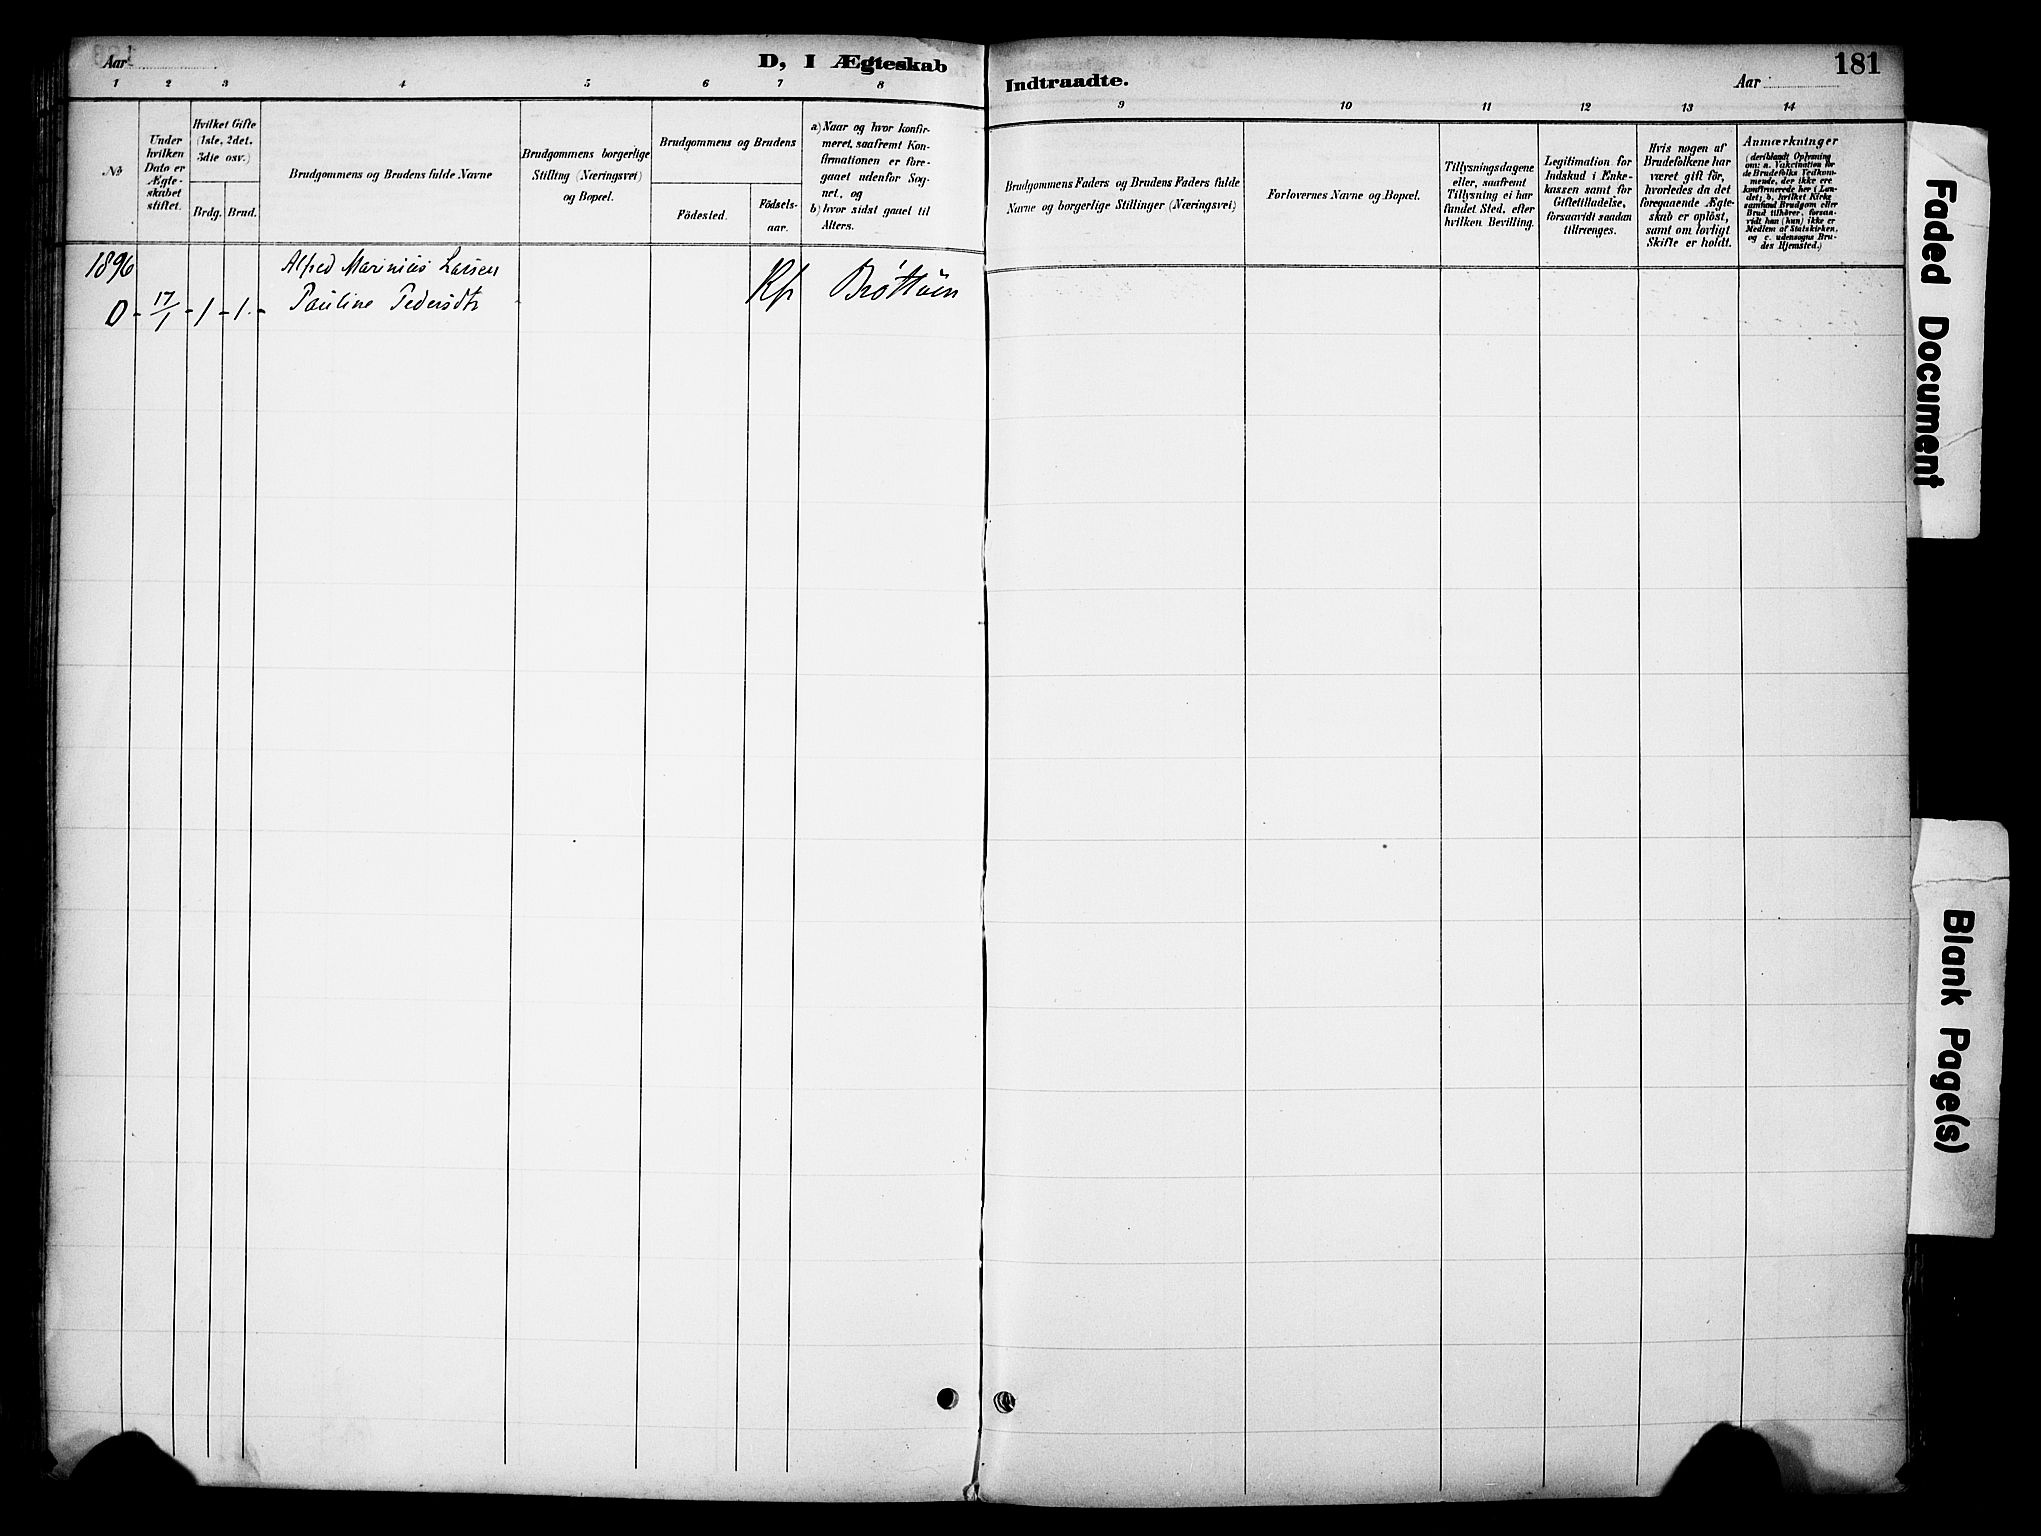 Aar
D, I Ægteskab
Indtraadte.
Aar
181
1 2 3 4 5 6 7 8 9 10 11 12 13 14
No
Under
hvilken
Dato er
Ægte-
skabet
stiftet.
Hvilket Gifte
(1ste, 2det,
3die osv.)
Brdg. Brud.
Brudgommens og Brudens fulde Navne
Brudgommens borgerlige
Stilling (Næringsvei)
og Bopæl.
Brudgommens og Brudens
Födested.
Födsels-
aar.
a) Naar og hvor konfir-
meret, saafremt Kon-
firmationen er fore-
gaaet udenfor Sog-
net, og
b) hvor sidst gaaet til
Alters.
Brudgommens Faders og Brudens Faders fulde
Navne og borgerlige Stillinger (Næringsvei)
Forlovernes Navne og Bopæl.
Tillysningsdagene
eller, saafremt
Tillysning ei har
fundet Sted, efter
hvilken Bevilling.
Legitimation for
Indskud i Enke-
kassen samt for
Giftetilladelse,
forsaavidt saadan
tiltrænges.
Hvis nogen af
Brudefolkene har
været gift för,
hvorledes da det
foregaaende Ægte-
skab er oplöst,
samt om lovligt
Skifte er holdt.
Anmærkninger
(deriblandt Oplysning
om: a. Vakcination for
de Brudefolks Vedkom-
mende, der ikke ere
konfirmerede her i Lan-
det; b. hvilket Kirke-
samfund Brudgom eller
Brud tilhører, forsaa-
vidt han (hun) ikke er
Medlem af Statskirken,
og c. udensogns Bru-
des Hjemsted.)
1896
Alfred Marinius Larsen
0 - 17/1 - 1 - 1 - Pauline Pedersdtr
Kfr Brøttum
Faded Document
Blank Page(s)